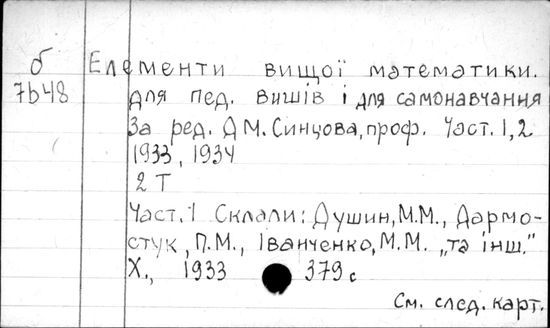 б Елементи вищої математики.
7b48 для пед. вишів і для самонавчання
За ред. ДМ. Синцова, проф. Част. 1, 2
1933, 1934
2 Т
Част. 1 Склали: Душин, М.М., Дармо-
стук, П.М., Іванченко, М.М. „та інш."
Х., 1933 379 с
См. след. карт.